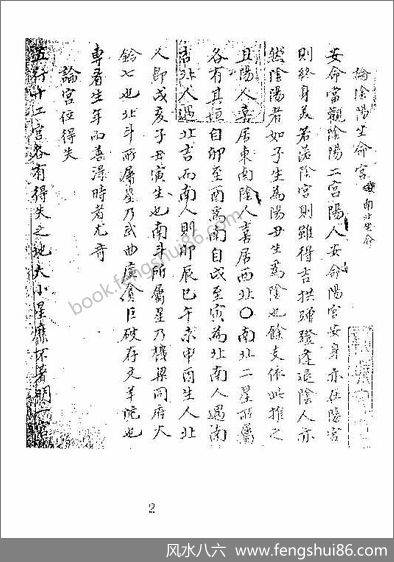 論陰陽生命宮 南北生命
安命當觀陰陽二宮陽人安命陽宮安身亦在陽宮
則終身美若落陰宮則雖得吉拱蹭蹬逢退陰人亦
然陰陽者如子生為陽丑生為陰也餘支依此推之
且陽人喜居東南陰人喜居西北〇南北二星所屬
各有其垣自卯至酉為南自戌至寅為北南人遇南
吉北人遇北吉而南人則卯辰巳午未申酉生人北
人即戌亥子丑寅生也南斗所屬星乃機梁同府火
鈴七也北斗所屬星乃武曲廉貪巨破存文羊陀也
專看生年而喜得時者尤奇
論宮位得失
五行十二宮各有得失之地大小星
book.fengshui86.com
2
风水八六 www.fengshui86.com